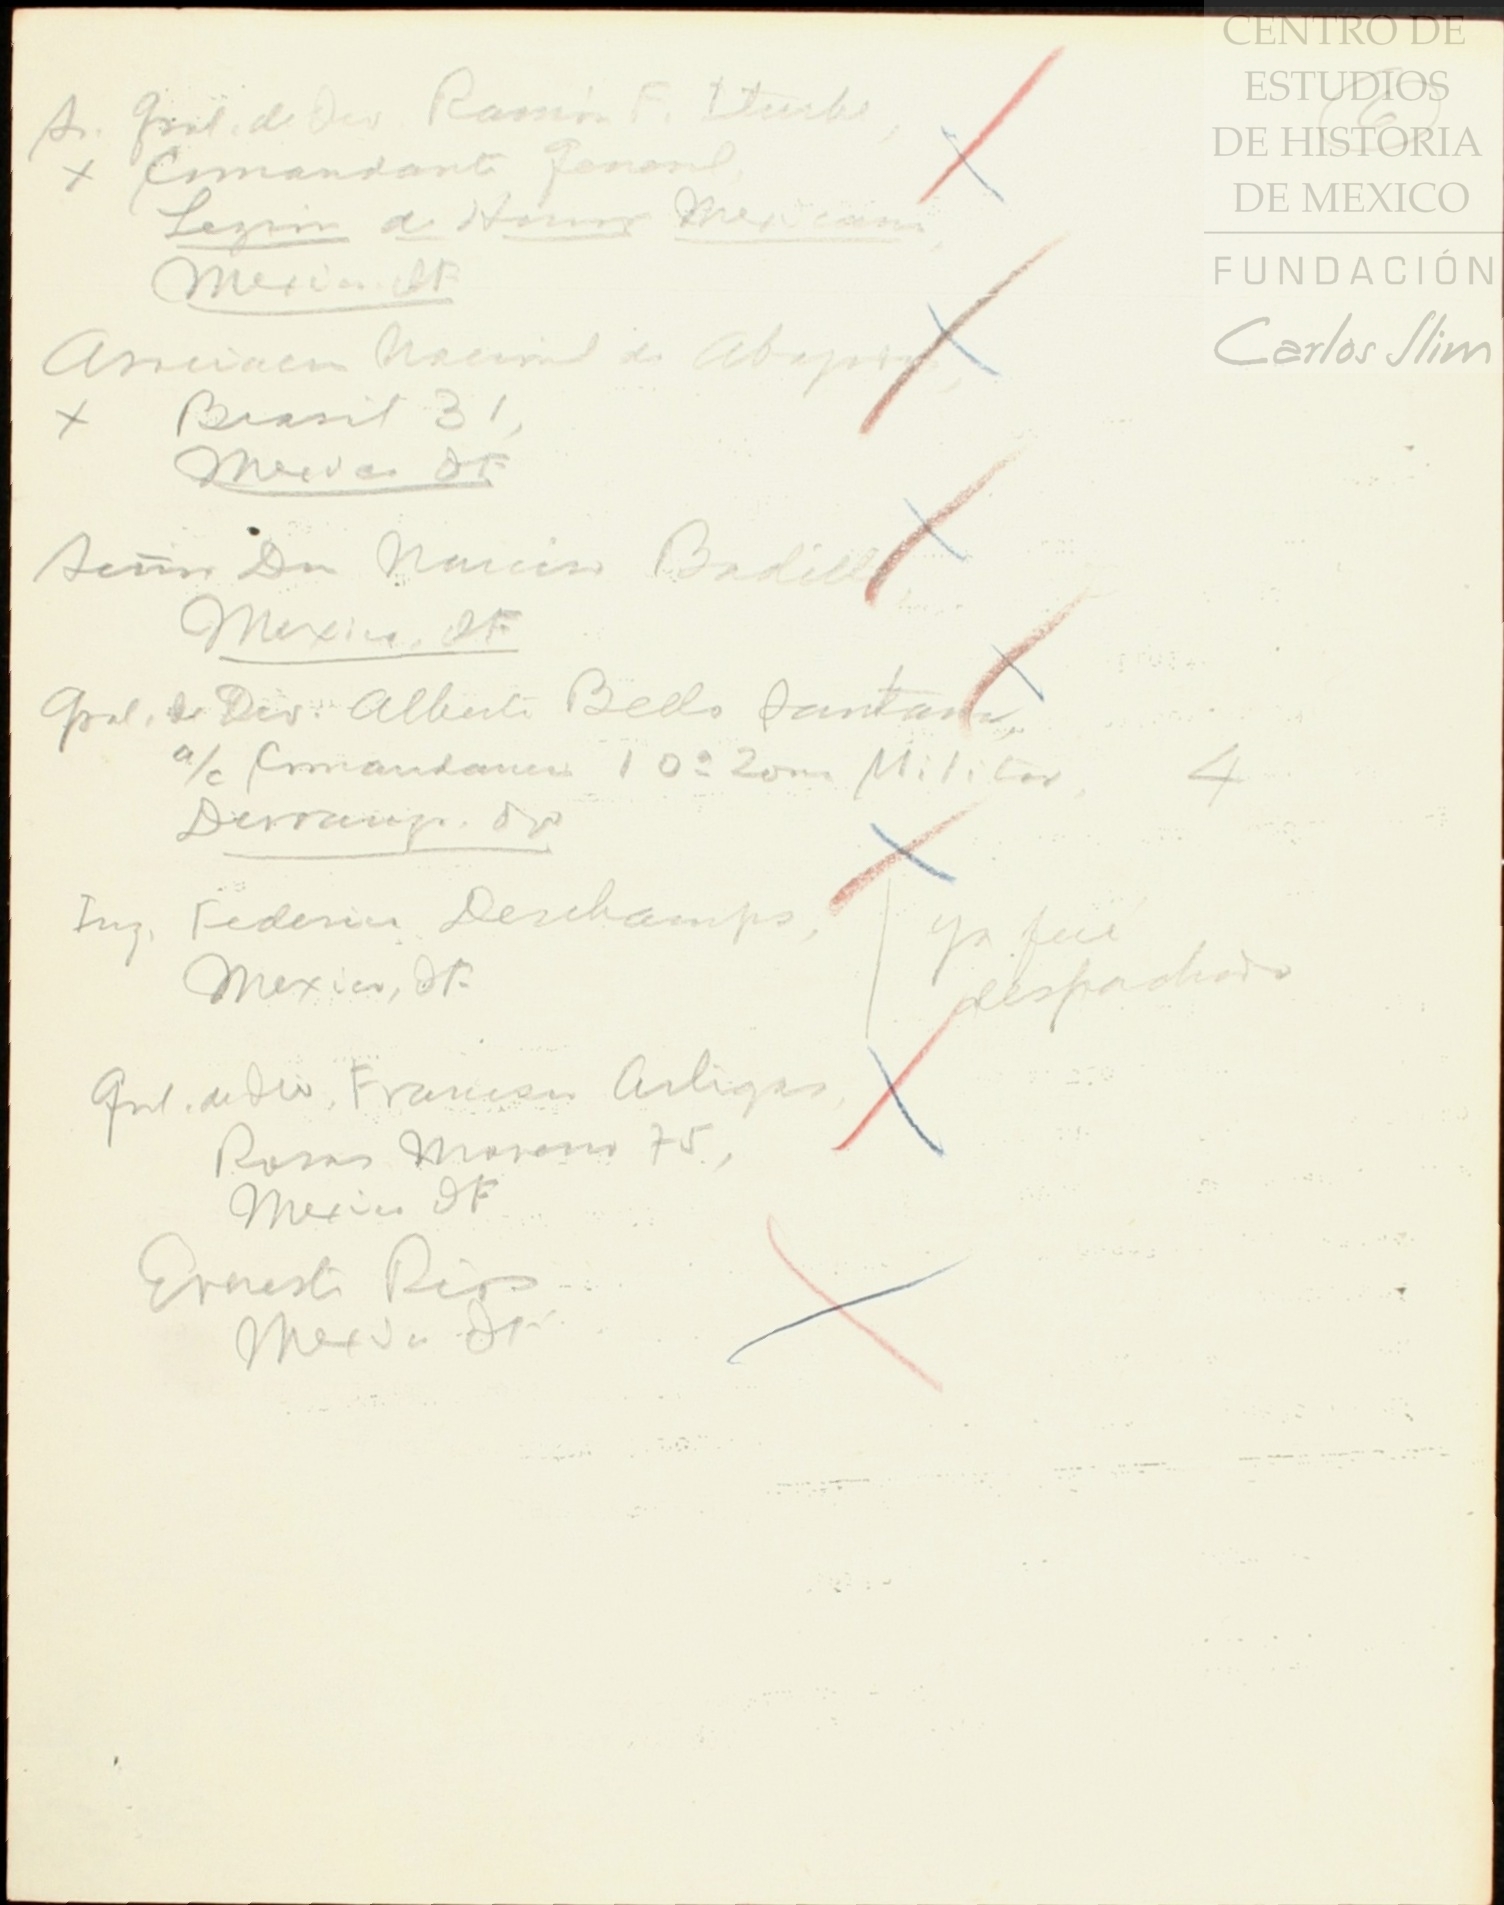 CENTRO DE
ESTUDIOS
DE HISTORIA
DE MEXICO
FUNDACIÓN
Carlos Slim
(6)
Sr. Gral. de Div. Ramón F. Iturbe,
x Comandante General,
Legion de Honor Mexicana,
Mexico. DF
Asociacion Nacional de Abogados,
x Brasil 31,
Mexico DF
Señor Don Narciso Badillo
Mexico, DF
Gral. de Div. Alberto Bello Santana,
a/c Comandancia 10ª Zona Militar, 4
Durango. Dgo
Ing. Federico Deschamps,
ya fué
Mexico, DF.
despachado
Gral. de Div. Francisco Artigas,
Rosas Moreno 75,
Mexico DF
Ernesto Rios
Mexico DF